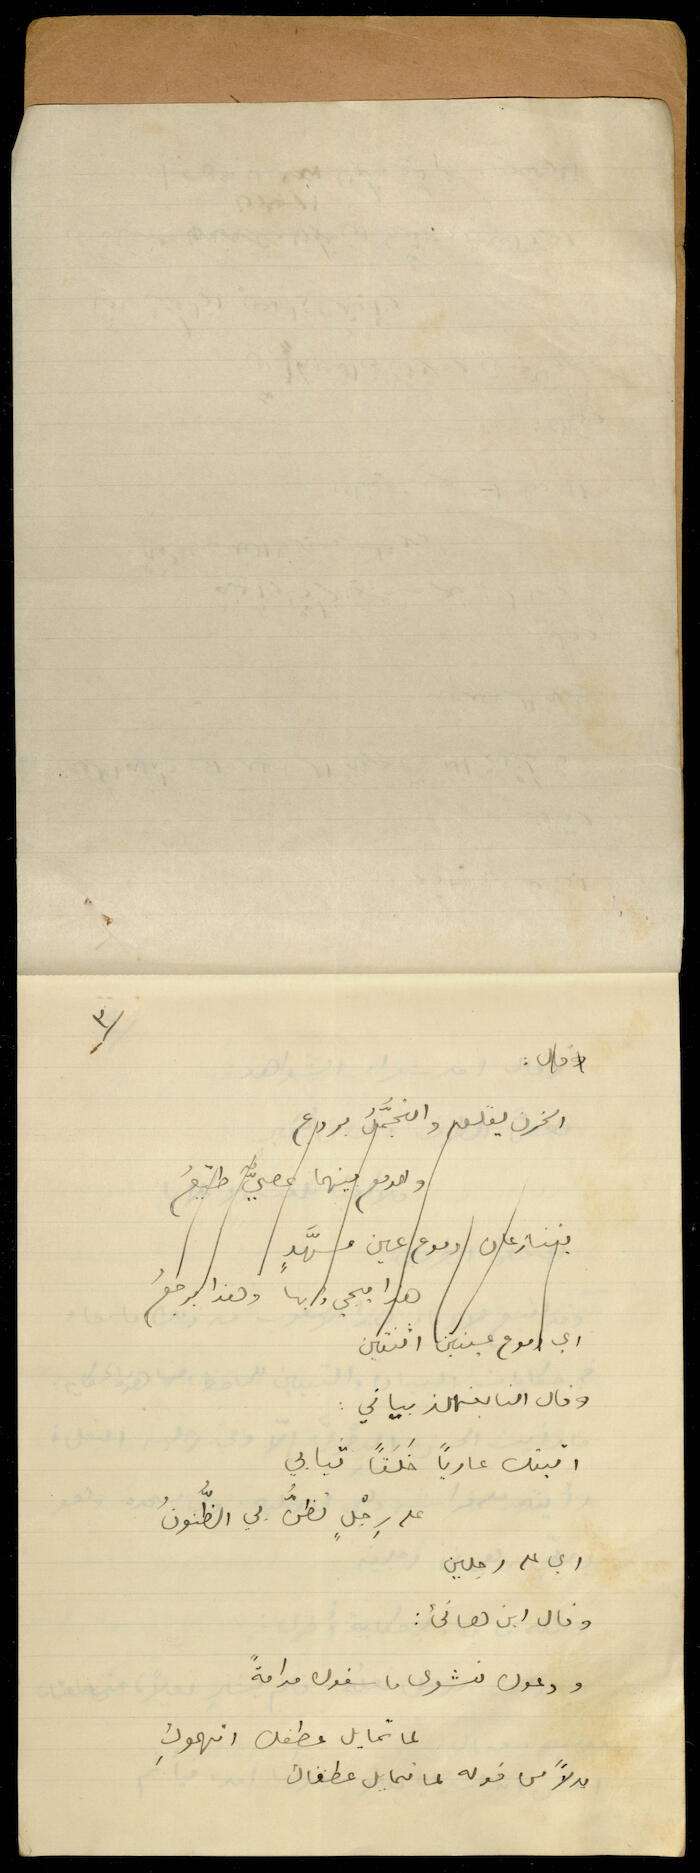 ٣/
وقال:
الحزن يقلق والتجمُّلُ يردع
والدمع بينهما عصيٌّ طيّعُ
يتنازعان دموع عين مسهَّدٍ
هذا يجيء بها وهذا يرجعُ
اي دموع عينين اثنتين
وقال النابغة الذبياني:
اتيتك عارياً خَلَقاً ثيابي
على رِجْلٍ تظنُّ بي الظُّنونُ
اي على رجلين
وقال ابن هانئ:
ودعوك نشوى ما سقوك مدامةً
لما تمايل عطفك اتهموكِ
بدلاً من قوله لما تمايل عطفاك